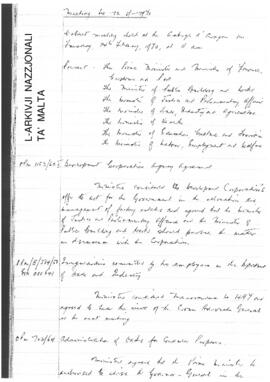 L-ARKIVJI NAZZJONALI
TA' MALTA
Meeting No 12
Cabinet meeting held at the Auberge d'Aragon on
Tuesday, February, 1970, at 11 a.m.
Present - the Prime Minister and Minister of Finance,
Customs and Port
the Minister of Public Building and Works
the Minister of Justice and Parliamentary Affairs
the Minister of Trade, Industry and Agriculture
the Minister of Health
the Minister of Education, Culture and Tourism
the Minister of Labour, Employment and Welfare
Development Corporation Agency Agreement
Ministers considered the Development Corporation's
offer to act for the Government in the allocation and
management of factory estates and agreed that the Minister
of Justice and Parliamentary Affairs and the Minister of
Public Building and Works should pursue the matter
in discussion with the Corporation.
Irregularities committed by two employees in the Department
of Trade and Industry
Ministers considered Memorandum No
agreed to hear the views of the Crown Advocate General
at the next meeting
OPM
Administration of Oaths for Census Purposes
Ministers agreed that the Prime Minister be
authorised to advise the Governor-General in the